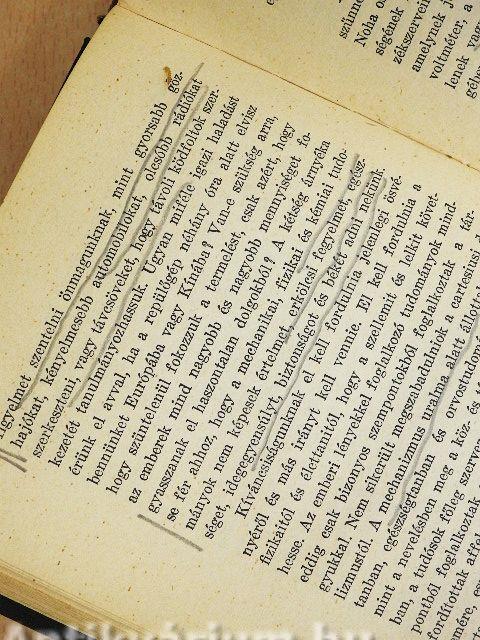 figyelmet szentelni önmagunknak, mint gyorsabb gőz-
hajókat, kényelmesebb automobilokat, olcsóbb rádiókat
szerkeszteni, vagy távcsöveket, hogy távoli ködfoltok szer-
kezetét tanulmányozhassuk. Ugyan miféle igazi haladást
érünk el avval, ha a repülőgép néhány óra alatt elvisz
bennünket Európába vagy Kínába? Van-e szükség arra,
hogy szüntelenül fokozzuk a termelést, csak azért, hogy
az emberek mind nagyobb és nagyobb mennyiséget fo-
gyasszanak el haszontalan dolgokból? A kétség árnyéka
se fér ahhoz, hogy a mechanikai, fizikai és kémiai tudo-
mányok nem képesek értelmet, erkölcsi fegyelmet, egész-
séget, idegegyensúlyt, biztonságot és békét adni nekünk.
Kíváncsiságunknak el kell fordulnia jelenlegi ösvé-
nyéről és más irányt kell vennie. El kell fordulnia a
fizikaitól és élettanitól, hogy a szellemit és lelkit követ-
hesse. Az emberi lényekkel foglalkozó tudományok mind-
eddig csak bizonyos szempontokból foglalkoztak a tár-
gyukkal. Nem sikerült megszabadulniok a cartesiusi
lizmustól. A mechanizmus uralma alatt állottak
tanban, egészségtanban és orvostudomá
mint a nevelésben meg a köz- és
ban, a tudósok főleg szerve
pontból foglalkoztak
fordítottak affe
szünne
Noha
ségének
zékszervein
amelynek
voltméter, a
lenek vagy
Antikvárium.hu